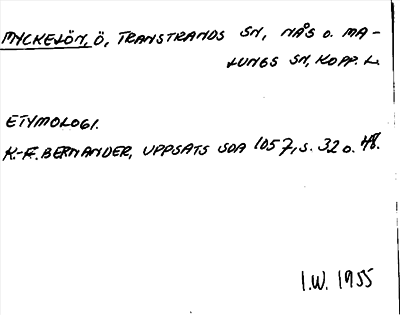 MYCKELÖN, Ö, TRANSTRANDS SN, NÅS O. MA-
LUNGS SN, KOPP. L.
ETYMOLOGI.
K.-E. BERNANDER, UPPSATS SDA 1057, S. 32 O. 48.
I.W. 1955